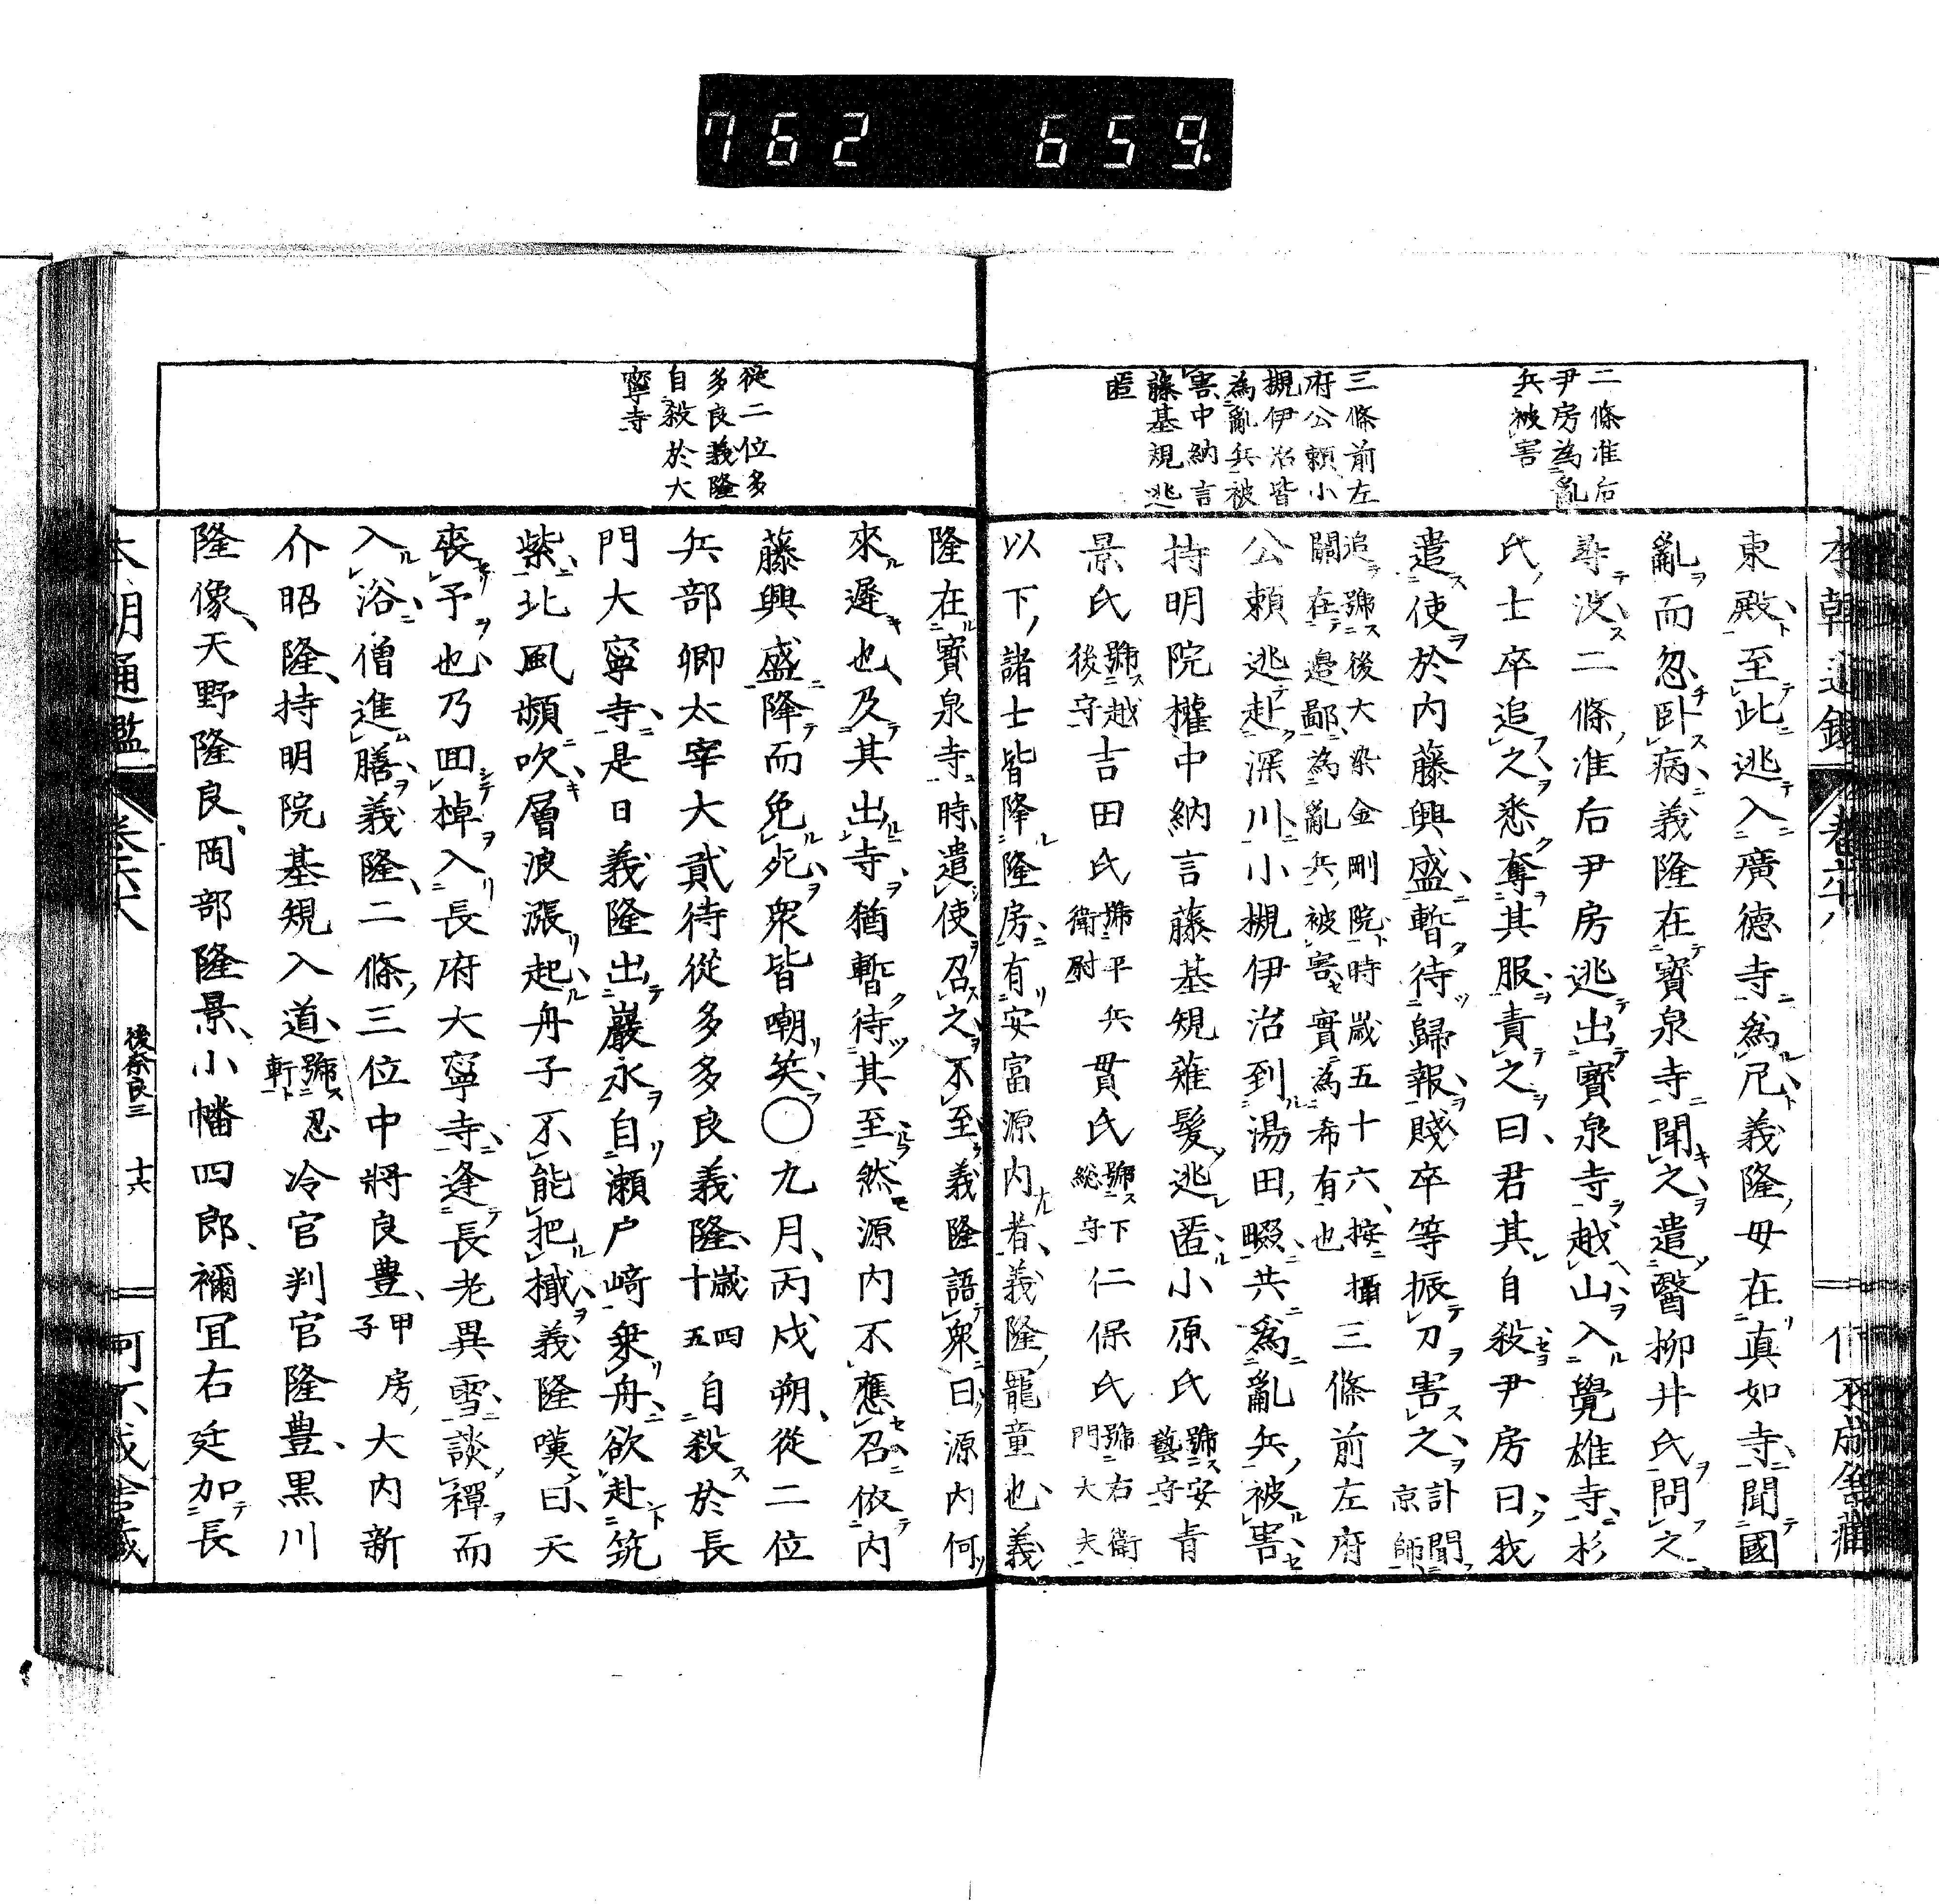 762 659.
二條准后
尹房為亂
兵被害
三條前左
府公頼小
槻伊治皆
為亂兵被
害中納言
藤基規逃
匿
東殿至此逃入廣德寺為尼義隆母在真如寺聞國
亂而忽卧病義隆在寶泉寺聞之遣醫柳井氏問之
尋沒二條准后尹房逃出寶泉寺越山入覺雄寺杉
氏士卒追之悉奪其服責之曰君其自殺尹房曰我
遣使於内藤興盛暫待歸報賤卒等振刀害之計聞京師
追號後大染金剛院時歲五十六按攝三條前左府
關在邉鄙為亂兵被害實為希有也
公頼逃赴深川小槻伊治到湯田畷共為亂兵被害
持明院權中納言藤基規薙髮逃匿小原氏號安藝守青
景氏號越後守吉田氏號平兵衛尉貫氏號下総守仁保氏號右衛門大夫
以下諸士皆降隆房有安富源内者義隆龍童也義
隆在寶泉寺時遣使召之不至義隆語衆曰源内何
來遲也及其出寺猶暫待其至然源内不應召依内
藤興盛降而免死衆皆嘲笑〇九月丙戌朔從二位
兵部卿太宰大貳待從多多良義隆歲四十五自殺於長
門大寧寺是日義隆出巖永自瀬户﨑乗舟欲赴筑
紫北風頻吹層浪漲起舟子不能把檝義隆嘆曰天
喪予也乃回棹入長府大寧寺逢長老異雪談禪而
入浴僧進膳義隆二條三位中將良豊尹房子大内新
介昭隆持明院基規入道號忍軒冷官判官隆豊黒川
隆像天野隆良岡部隆景小幡四郎禰冝右廷加長
從二位多
多良義隆
自殺於大
寧寺
後奈良三
十六